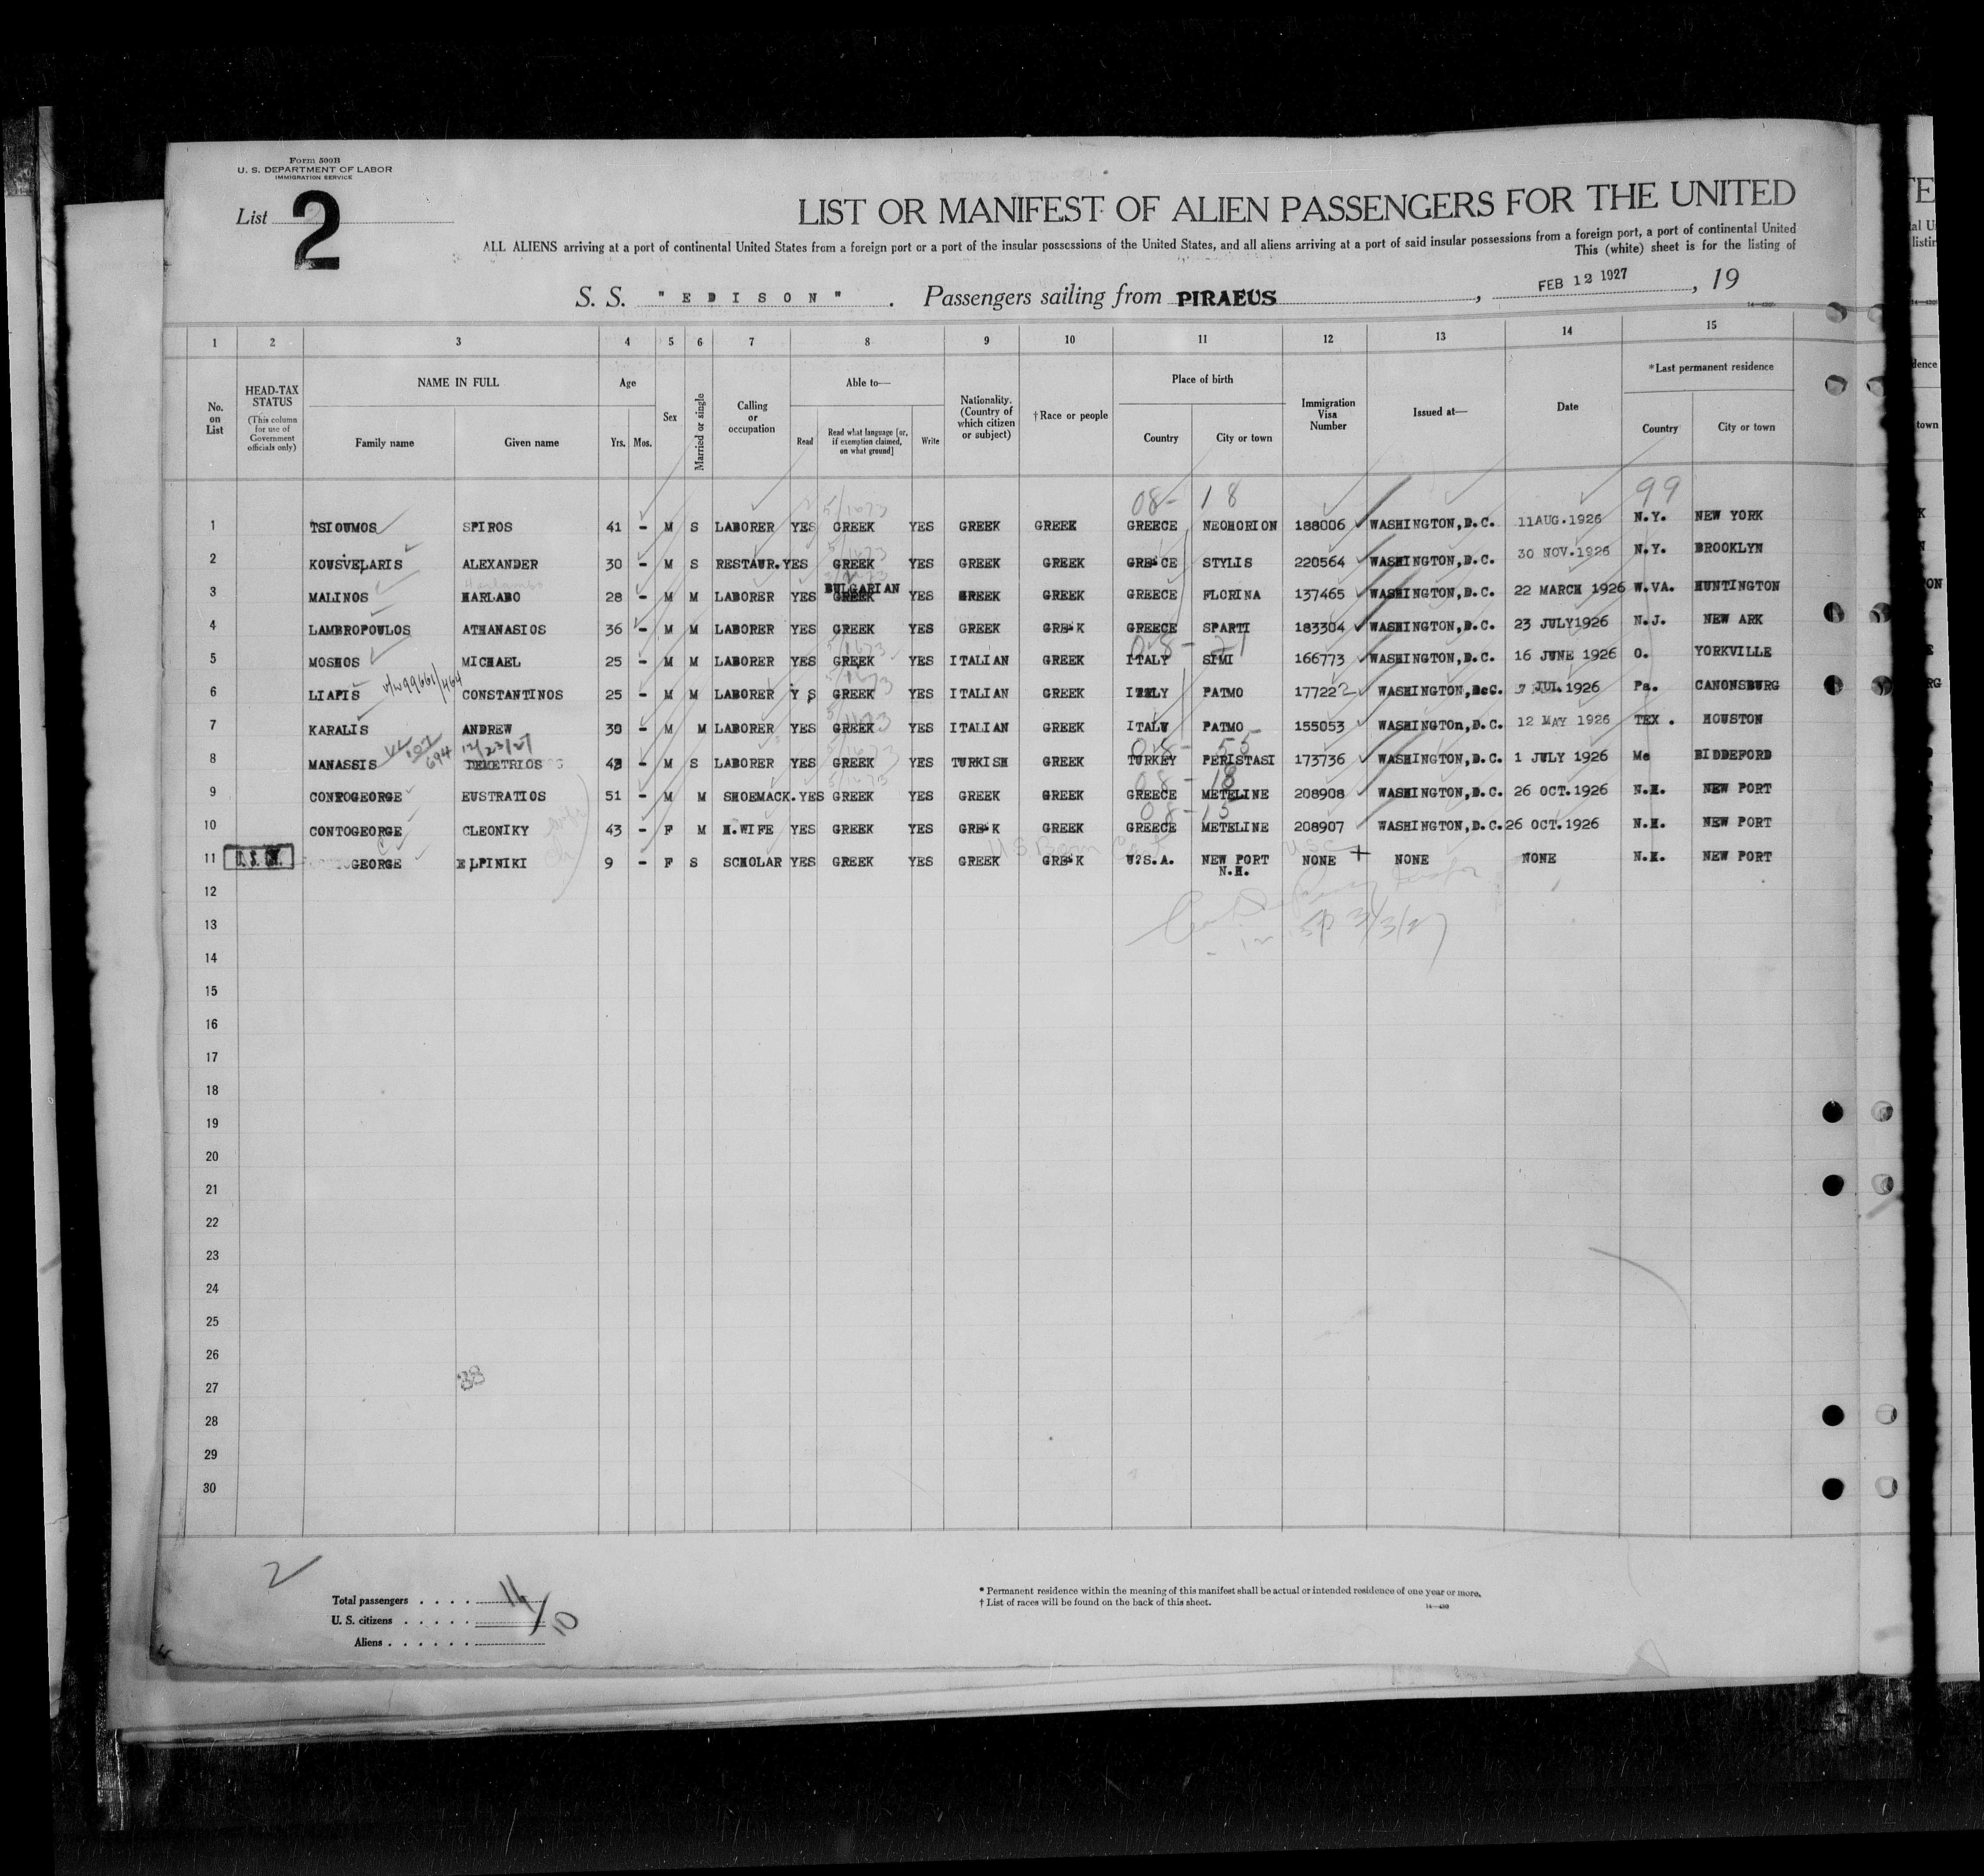 Form 500B
U. S. DEPARTMENT OF LABOR
IMMIGRATION SERVICE
List 2
LIST OR MANIFEST OF ALIEN PASSENGERS FOR THE UNITED
ALL ALIENS arriving at a port of continental United States from a foreign port or a port of the insular possessions of the United States, and all aliens arriving at a port of said insular possessions from a foreign port, a port of continental United
This (white) sheet is for the listing of
S. S. "EDISON" . Passengers sailing from PIRAEUS , FEB 12 1927 , 19
1 2 3 4 5 6 7 8 9 10 11 12 13 14 15
No. on List
HEAD-TAX STATUS (This column for use of Government officials only)
NAME IN FULL Family name Given name
Age Yrs. Mos.
Sex
Married or single
Calling or occupation
Able to— Read Read what language [or, if exemption claimed, on what ground] Write
Nationality. (Country of which citizen or subject)
†Race or people
Place of birth Country City or town
Immigration Visa Number
Issued at—
Date
*Last permanent residence Country City or town
08- 18 99
1 TSIOUMOS SPIROS 41 - M S LABORER YES GREEK YES GREEK GREEK GREECE NEOHORION 188006 WASHINGTON,D.C. 11AUG.1926 N.Y. NEW YORK
2 KOUSVELARIS ALEXANDER 30 - M S RESTAUR.YES GREEK YES GREEK GREEK GRE CE STYLIS 220564 WASHINGTON,D.C. 30 NOV.1926 N.Y. BROOKLYN
BULGARIAN
3 MALINOS HARLABO 28 - M M LABORER YES GREEK YES GREEK GREEK GREECE FLORINA 137465 WASHINGTON,D.C. 22 MARCH 1926 W.VA. HUNTINGTON
4 LAMBROPOULOS ATHANASIOS 36 - M M LABORER YES GREEK YES GREEK GRE K GREECE SPARTI 183304 WASHINGTON,D.C. 23 JULY1926 N.J. NEW ARK
08- 21
5 MOSHOS MICHAEL 25 - M M LABORER YES GREEK YES ITALIAN GREEK ITALY SIMI 166773 WASHINGTON,D.C. 16 JUNE 1926 O. YORKVILLE
6 LIAPIS CONSTANTINOS 25 - M M LABORER Y S GREEK YES ITALIAN GREEK ITALY PATMO 177222 WASHINGTON,DcC. 7 JUL.1926 Pa. CANONSBURG
7 KARALIS ANDREW 30 - M M LABORER YES GREEK YES ITALIAN GREEK ITALY PATMO 155053 WASHINGTOn,D.C. 12 MAY 1926 TEX . HOUSTON
12/23/27 08- 55
8 MANASSIS DEMETRIOS 43 - M S LABORER YES GREEK YES TURKISH GREEK TURKEY PERISTASI 173736 WASHINGTON,D.C. 1 JULY 1926 Me BIDDEFORD
08- 18
9 CONTOGEORGE EUSTRATIOS 51 - M M SHOEMACK.YES GREEK YES GREEK GREEK GREECE METELINE 208908 WASHINGTON,D.C. 26 OCT.1926 N.H. NEW PORT
08-15
10 CONTOGEORGE CLEONIKY 43 - F M H.WIFE YES GREEK YES GRE K GREEK GREECE METELINE 208907 WASHINGTON,D.C.26 OCT.1926 N.H. NEW PORT
US Born USC
11 GEORGE ELPINIKI 9 - F S SCHOLAR YES GREEK YES GREEK GRE K U.S.A. NEW PORT N.H. NONE + NONE NONE N.H. NEW PORT
12
13
14
15
16
17
18
19
20
21
22
23
24
25
26
27
28
29
30
38
2
Total passengers . . . . 11
U. S. citizens . . . . . 10
Aliens . . . . . .
* Permanent residence within the meaning of this manifest shall be actual or intended residence of one year or more.
† List of races will be found on the back of this sheet.